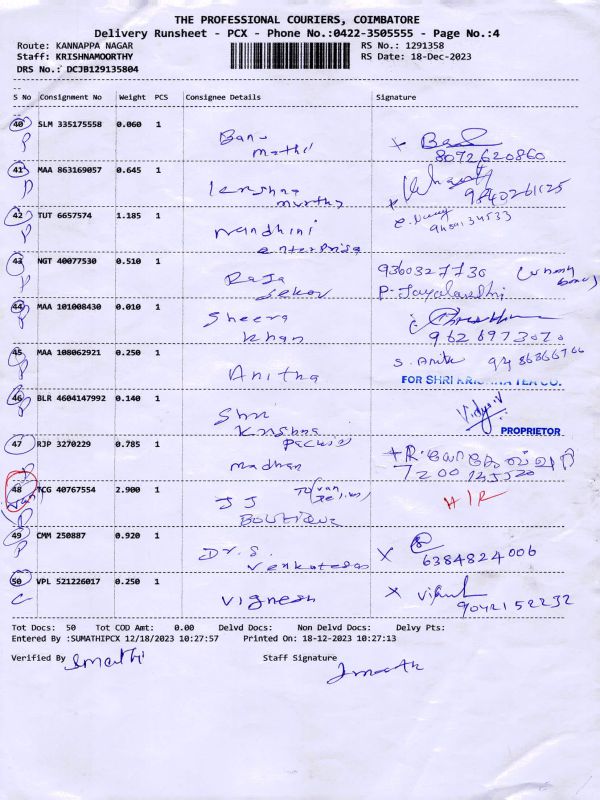 THE PROFESSIONAL COURIERS, COIMBATORE
Delivery Runsheet - PCX - Phone No.:0422-3505555 - Page No.:4
Route: KANNAPPA NAGAR RS No.: 1291358
Staff: KRISHNAMOORTHY RS Date: 18-Dec-2023
DRS No.: DCJB129135804
S No Consignment No Weight PCS Consignee Details Signature
40 SLM 335175558 0.060 1 Banu
P mathi 8072620860
41 MAA 863169057 0.645 1 krishna
murthy 9840261125
42 TUT 6657574 1.185 1 Nandhini
P enterprise
43 NGT 40077530 0.510 1 Raja 9360327730
P sekar P. Jayalandhi
44 MAA 101008430 0.010 1 Sheera
P khan 9626973070
45 MAA 108062921 0.250 1 Anitha S. Anitha
P FOR SHRI KRISHNA TEA CO.
46 BLR 4604147992 0.140 1 Shri
P Krishna PROPRIETOR
47 RJP 3270229 0.785 1 madhan
48 TCG 40767554 2.900 1 JJ
BOUTIQUE
49 CMM 250887 0.920 1 Dr. S.
P Venkatesan 6384824006
50 VPL 521226017 0.250 1 Vignesh
C 9042152232
Tot Docs: 50 Tot COD Amt: 0.00 Delvd Docs: Non Delvd Docs: Delvy Pts:
Entered By :SUMATHIPCX 12/18/2023 10:27:57 Printed On: 18-12-2023 10:27:13
Verified By Staff Signature